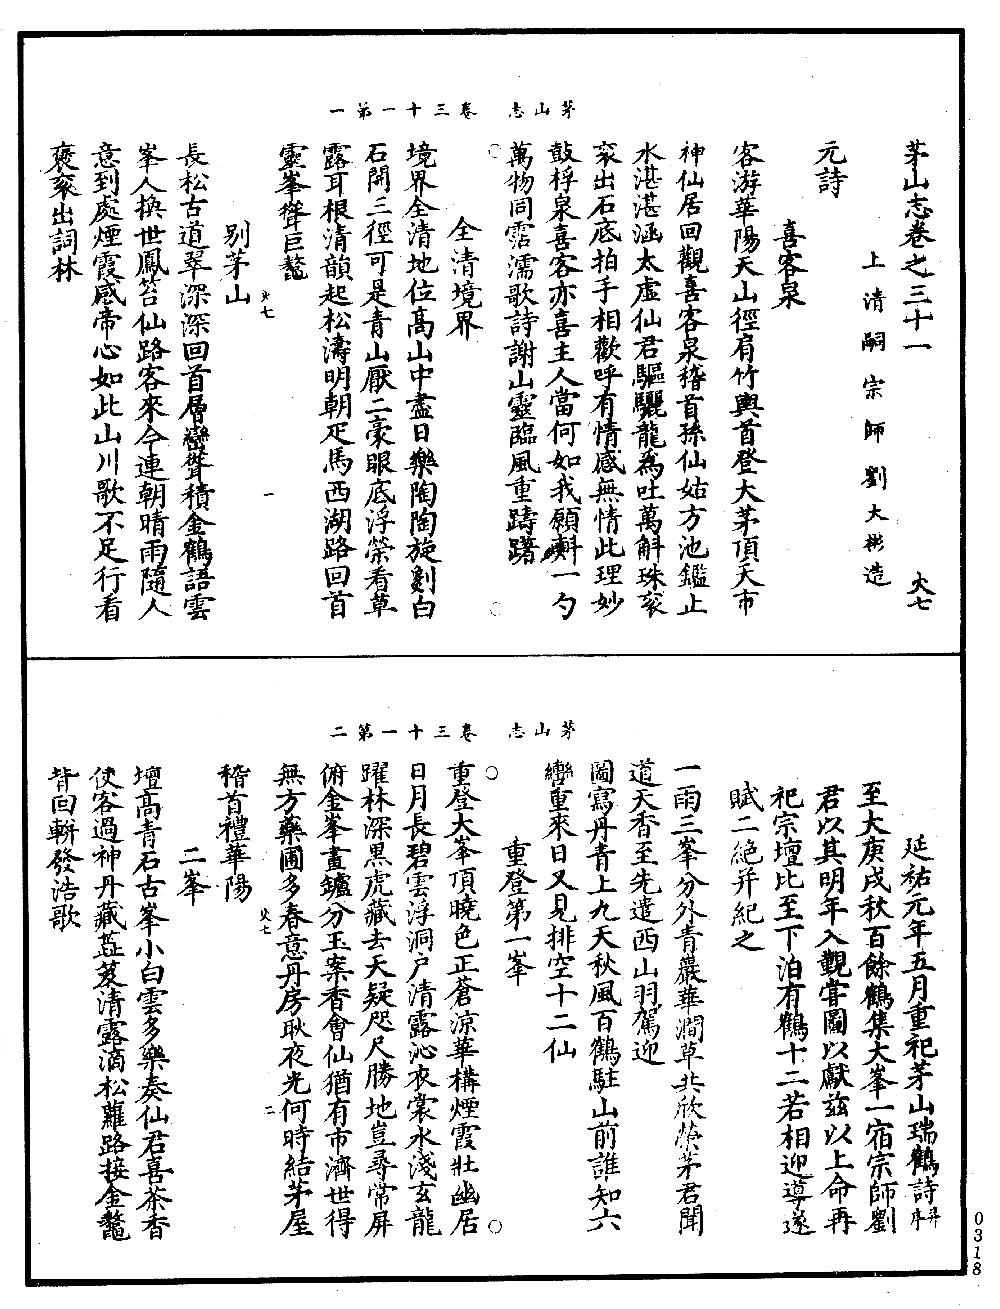 茅山志卷三十一第一
茅山志卷之三十一 大七
上清嗣宗師劉大彬造
元詩
喜客泉
客游華陽天山徑肩竹輿首登大茅頂天市
神仙居回觀喜客泉稽首孫仙姑方池鑑止
水湛湛涵太虛仙君驅驪龍為吐萬斛珠衮
衮出石底拍手相歡呼有情感無情此理妙
鼓桴泉喜客亦喜主人當何如我願㪺一勺
萬物同霑濡歌詩謝山靈臨風重躊躇
全清境界
境界全清地位高山中盡日樂陶陶旋剜白
石開三徑可是青山厭二豪眼底浮榮看草
露耳根清韻起松濤明朝疋馬西湖路回首
靈峯聳巨鼇
大七 一
別茅山
長松古道翠深深回首層巒聳積金鶴語雲
峯人換世鳳笞仙路客來今連朝晴雨隨人
意到處煙霞感帝心如此山川歌不足行看
褒衮出詞林
茅山志卷三十一第二
延祐元年五月重祀茅山瑞鶴詩并序
至大庚戌秋百餘鶴集大峯一宿宗師劉
君以其明年入觀嘗圖以獻茲以上命再
祀宗壇比至下泊有鶴十二若相迎導遂
賦二絶并紀之
一雨三峯分外青巖華澗草共欣榮茅君聞
道天香至先遣西山羽駕迎
圖寫丹青上九天秋風百鶴駐山前誰知六
巒重來日又見排空十二仙
重登第一峯
重登大峯頂曉色正蒼涼華構煙霞壯幽居
日月長碧雲浮洞戶清露沁衣裳水淺玄龍
躍林深黑虎藏去天疑咫尺勝地豈尋常屏
俯金峯畫鑪分玉案香會仙猶有市濟世得
無方藥圃多春意丹房耿夜光何時結茅屋
大七 二
稽首禮華陽
二峯
壇高青石古峯小白雲多樂奏仙君喜茶香
使客過神丹藏蓝芨清露滴松蘿路接金鼇
背回軿發浩歌
0318